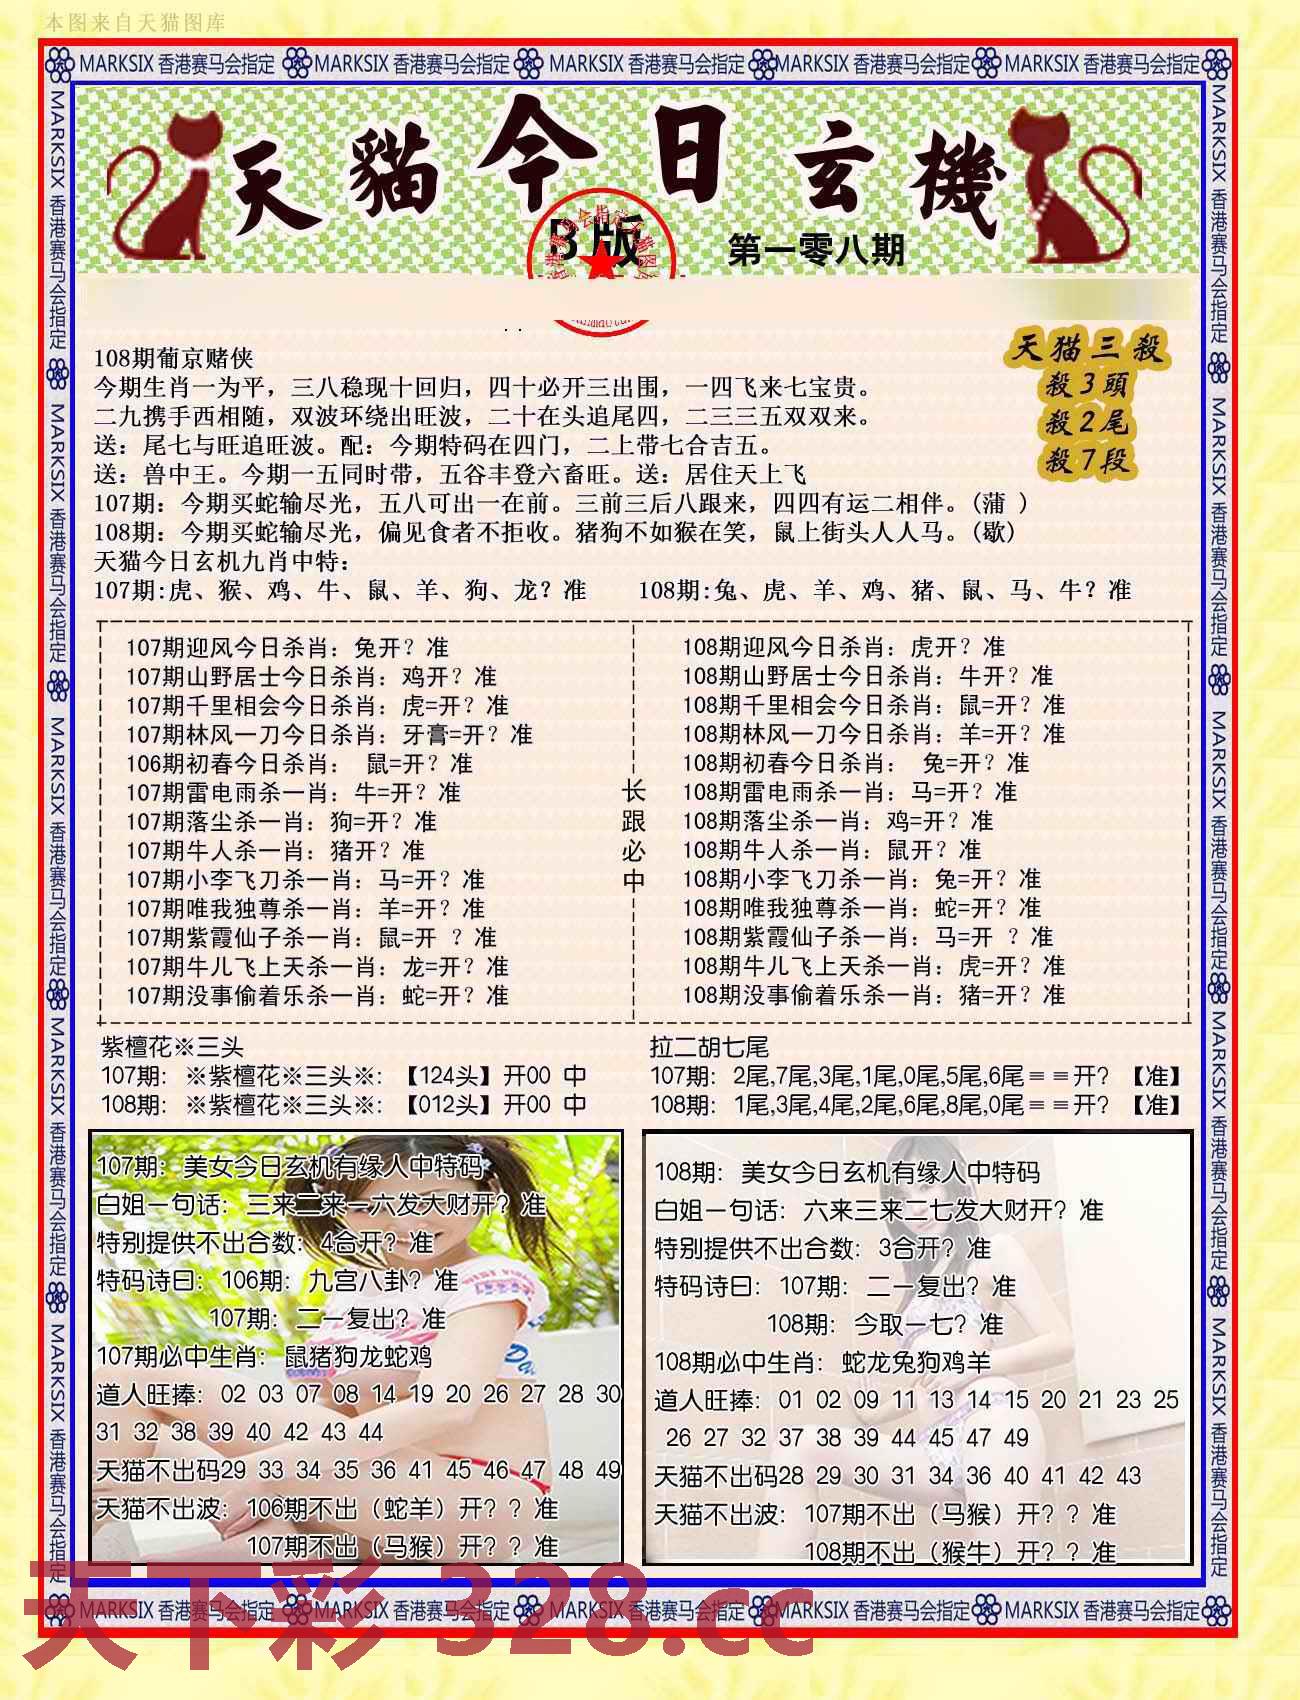 本图来自天猫图库
MARKSIX 香港赛马会指定 MARKSIX 香港赛马会指定 MARKSIX 香港赛马会指定 MARKSIX 香港赛马会指定 MARKSIX 香港赛马会指定
MARKSIX 香港赛马会指定 MARKSIX 香港赛马会指定 MARKSIX 香港赛马会指定 MARKSIX 香港赛马会指定 MARKSIX 香港赛马会指定
MARKSIX 香港赛马会指定 MARKSIX 香港赛马会指定 MARKSIX 香港赛马会指定 MARKSIX 香港赛马会指定 MARKSIX 香港赛马会指定
天貓今日玄機
B版
第一零八期
天猫三殺
殺3頭
殺2尾
殺7段
108期葡京赌侠
今期生肖一为平，三八稳现十回归，四十必开三出围，一四飞来七宝贵。
二九携手西相随，双波环绕出旺波，二十在头追尾四，二三三五双双来。
送：尾七与旺追旺波。配：今期特码在四门，二上带七合吉五。
送：兽中王。今期一五同时带，五谷丰登六畜旺。送：居住天上飞
107期：今期买蛇输尽光，五八可出一在前。三前三后八跟来，四四有运二相伴。(蒲 )
108期：今期买蛇输尽光，偏见食者不拒收。猪狗不如猴在笑，鼠上街头人人马。(歇)
天猫今日玄机九肖中特：
107期:虎、猴、鸡、牛、鼠、羊、狗、龙？准 108期:兔、虎、羊、鸡、猪、鼠、马、牛？准
107期迎风今日杀肖：兔开？准
107期山野居士今日杀肖：鸡开？准
107期千里相会今日杀肖：虎=开？准
107期林风一刀今日杀肖：牙膏=开？准
106期初春今日杀肖： 鼠=开？准
107期雷电雨杀一肖：牛=开？准
107期落尘杀一肖：狗=开？准
107期牛人杀一肖：猪开？准
107期小李飞刀杀一肖：马=开？准
107期唯我独尊杀一肖：羊=开？准
107期紫霞仙子杀一肖：鼠=开 ？准
107期牛儿飞上天杀一肖：龙=开？准
107期没事偷着乐杀一肖：蛇=开？准
长跟必中
108期迎风今日杀肖：虎开？准
108期山野居士今日杀肖：牛开？准
108期千里相会今日杀肖：鼠=开？准
108期林风一刀今日杀肖：羊=开？准
108期初春今日杀肖： 兔=开？准
108期雷电雨杀一肖：马=开？准
108期落尘杀一肖：鸡=开？准
108期牛人杀一肖：鼠开？准
108期小李飞刀杀一肖：兔=开？准
108期唯我独尊杀一肖：蛇=开？准
108期紫霞仙子杀一肖：马=开 ？准
108期牛儿飞上天杀一肖：虎=开？准
108期没事偷着乐杀一肖：猪=开？准
紫檀花※三头
107期：※紫檀花※三头※：【124头】开00 中
108期：※紫檀花※三头※：【012头】开00 中
拉二胡七尾
107期：2尾,7尾,3尾,1尾,0尾,5尾,6尾≡≡开？【准】
108期：1尾,3尾,4尾,2尾,6尾,8尾,0尾≡≡开？【准】
107期：美女今日玄机有缘人中特码
白姐一句话：三来二来一六发大财开？准
特别提供不出合数：4合开？准
特码诗曰：106期：九宫八卦？准
107期：二一复出？准
107期必中生肖：鼠猪狗龙蛇鸡
道人旺捧：02 03 07 08 14 19 20 26 27 28 30
31 32 38 39 40 42 43 44
天猫不出码29 33 34 35 36 41 45 46 47 48 49
天猫不出波：106期不出（蛇羊）开？？准
107期不出（马猴）开？？准
108期：美女今日玄机有缘人中特码
白姐一句话：六来三来二七发大财开？准
特别提供不出合数：3合开？准
特码诗曰：107期：二一复出？准
108期：今取一七？准
108期必中生肖：蛇龙兔狗鸡羊
道人旺捧：01 02 09 11 13 14 15 20 21 23 25
26 27 32 37 38 39 44 45 47 49
天猫不出码28 29 30 31 34 36 40 41 42 43
天猫不出波：107期不出（马猴）开？？准
108期不出（猴牛）开？？准
天下彩 328.cc
MARKSIX 香港赛马会指定 MARKSIX 香港赛马会指定 MARKSIX 香港赛马会指定 MARKSIX 香港赛马会指定 MARKSIX 香港赛马会指定